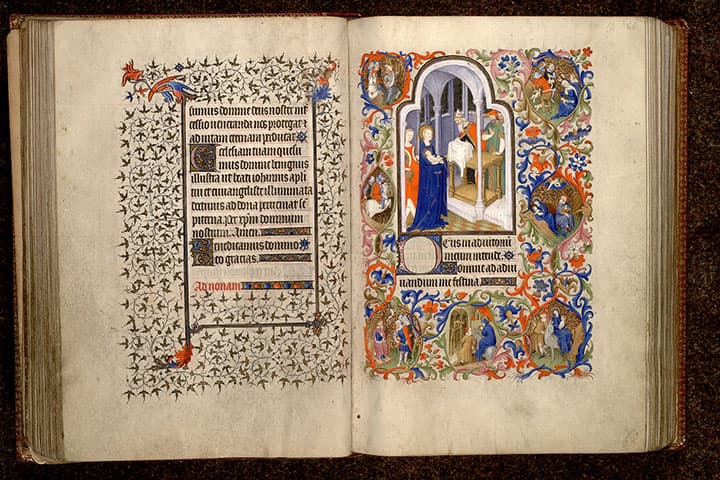 sumus domine deus noster int
cessio veneranda nos protegat et
ad vitam eternam perducat
Ecclesiam tuam quesu
mus domine benignus
illustra ut beati iohannis apli
tui et euuangeliste illuminata
doctrinis ad dona perveniat se
piterna. Per xpm dominum
nostrum. Amen.
Benedicamus domino
Deo gracias.
Ad nonam
Deus in adiutoriu
meum intende.
Domine ad adiu
vandum me festina.